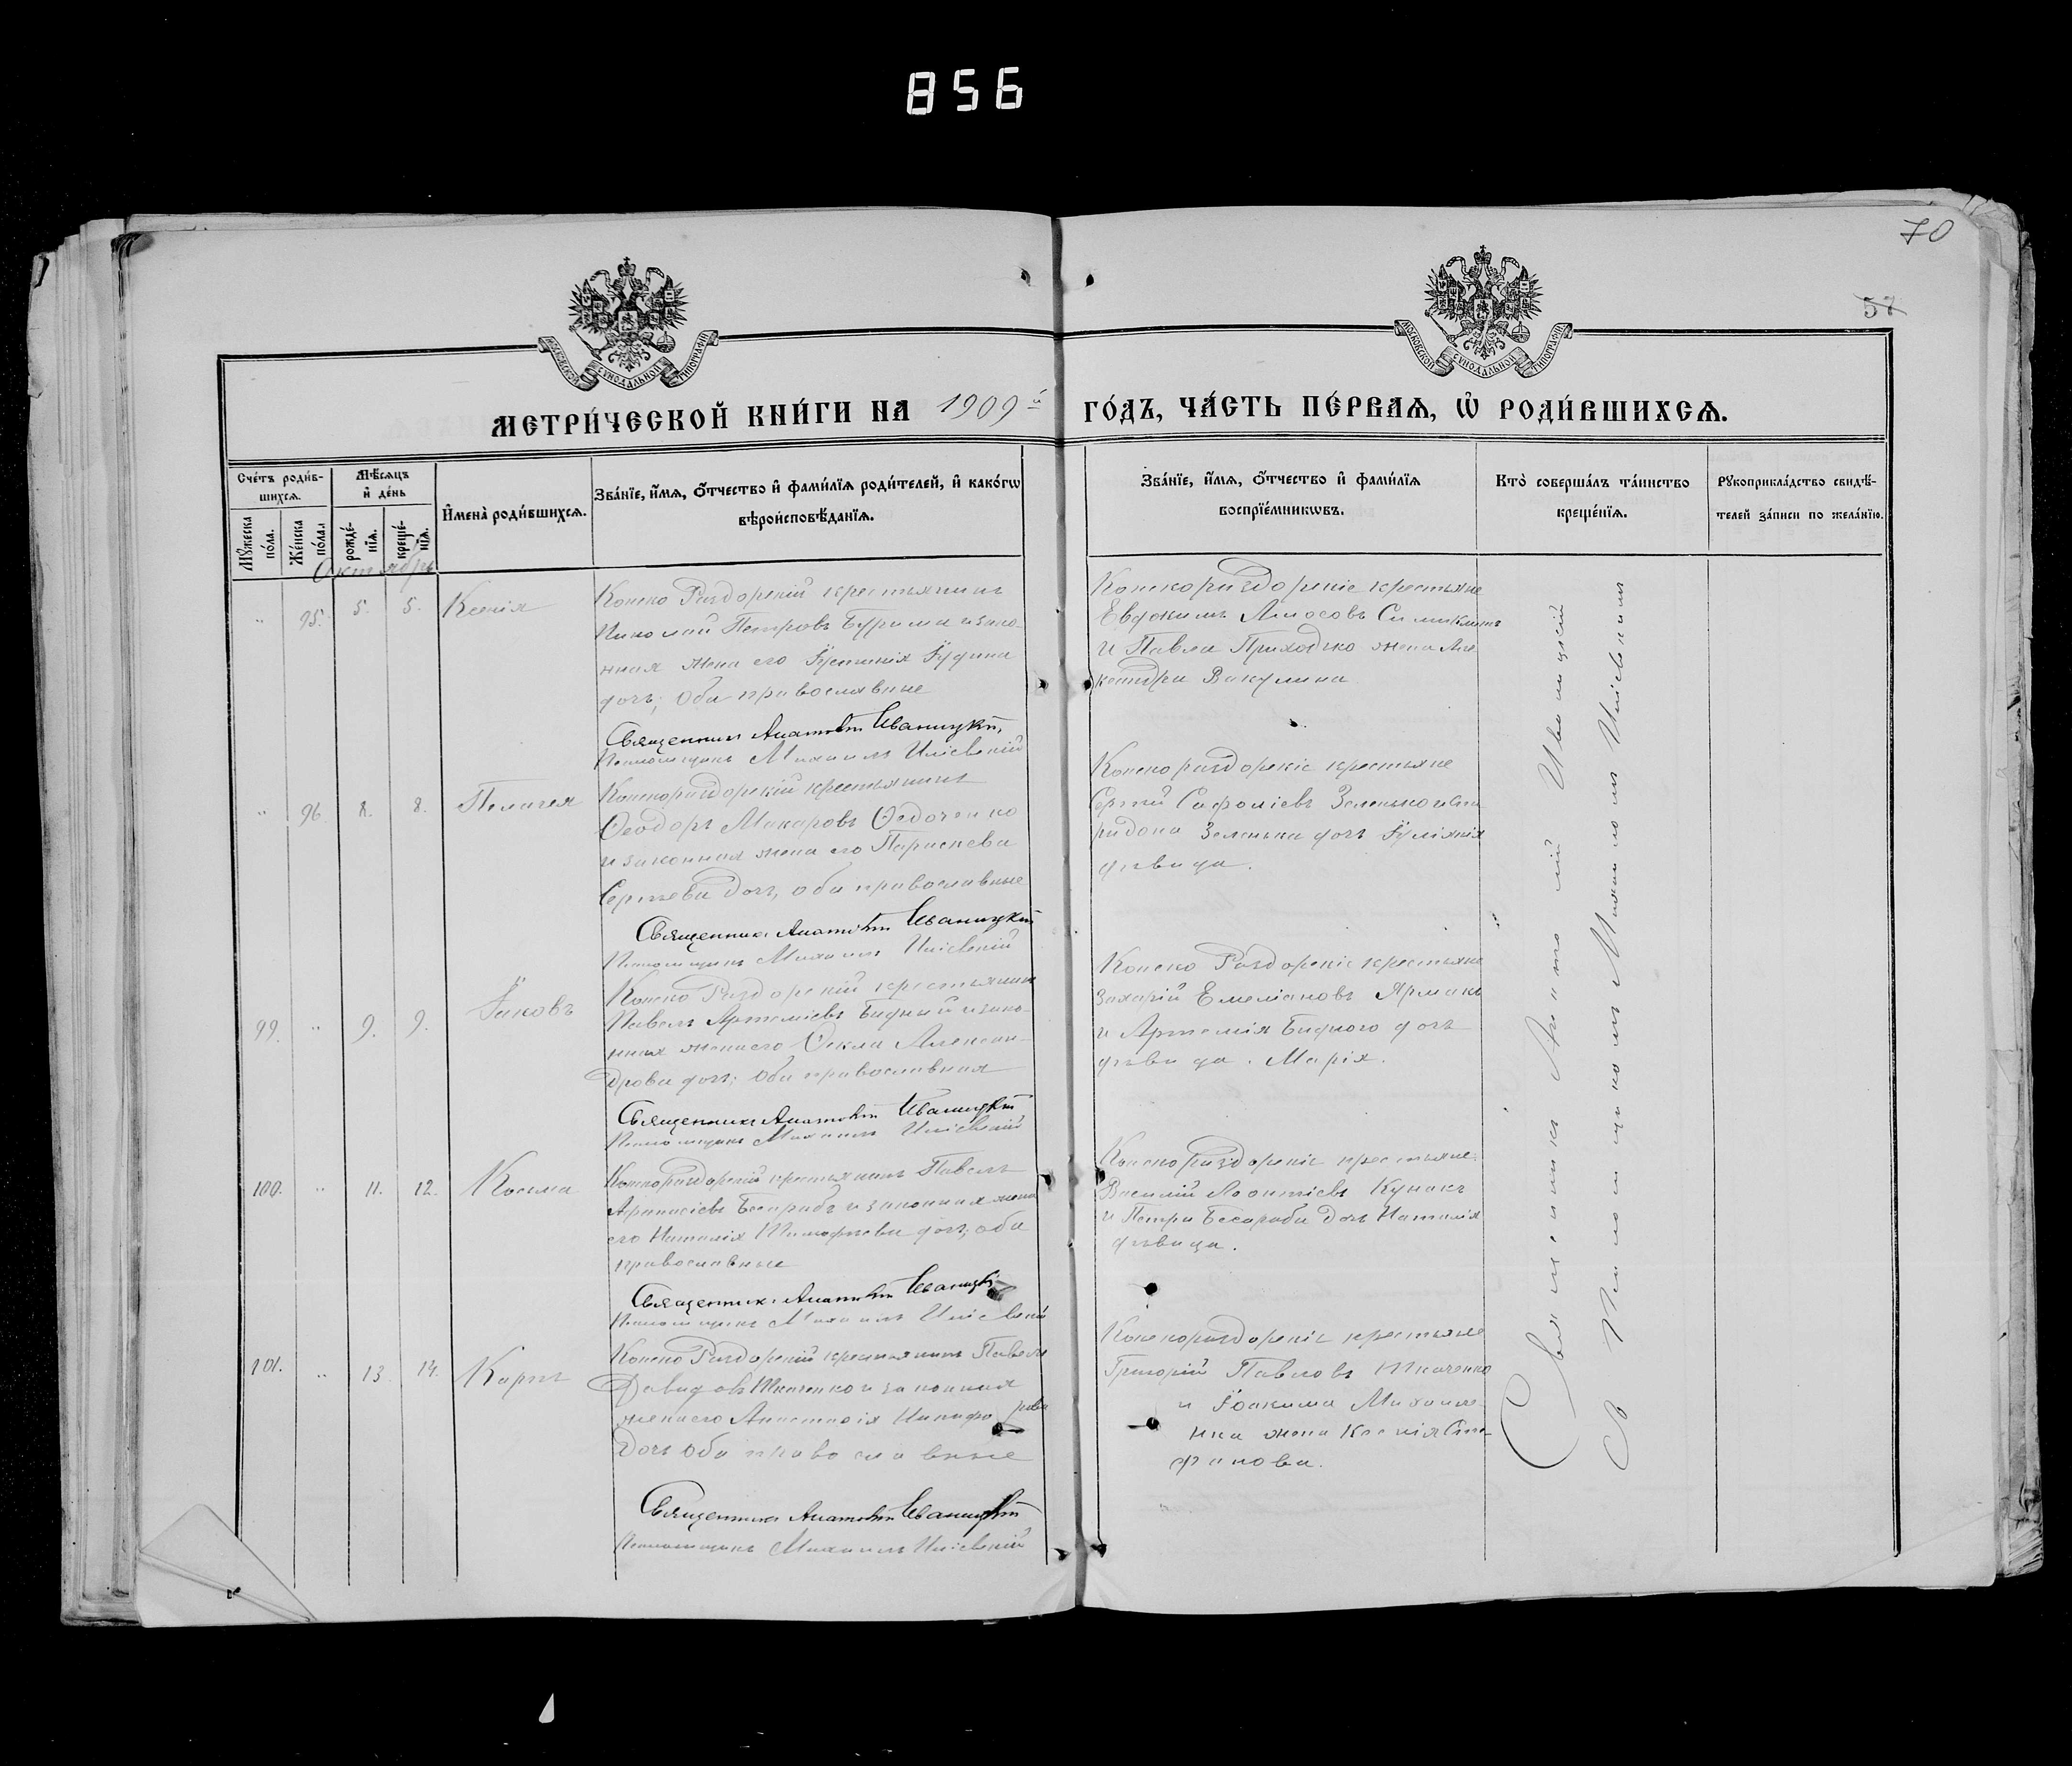 856
70
57
МОСКОВСКОЙ СУНОДАЛЬНОЙ ТИПОГРАФІИ
МОСКОВСКОЙ СУНОДАЛЬНОЙ ТИПОГРАФІИ
МЕТРИ́ЧЕСКОЙ КНИ́ГИ НА 1909й ГО́ДЪ, ЧА́СТЬ ПЕ́РВАѦ, Ѡ҆ РОДИ́ВШИХСѦ.
Сче́тъ роди́в-
шихсѧ.
Мꙋ́жеска по́ла.
Же́нска по́ла.
Мѣ́сѧцъ
и҆ де́нь
рожде́-
нїѧ.
креще́-
нїѧ.
И҆мена̀ роди́вшихсѧ.
Зва́нїе, и҆́мѧ, ѻ҆́тчество и҆ фами́лїѧ роди́телей, и҆ како́гѡ
вѣроисповѣ́данїѧ.
Зва́нїе, и҆́мѧ, ѻ҆́тчество и҆ фами́лїѧ
воспрїе́мникѡвъ.
Кто̀ соверша́лъ та́инство
креще́нїѧ.
Рꙋкоприкла́дство свидѣ́-
телей за́писи по жела́нїю.
Октябрь
" 95. 5. 5. Ксенія
Конско Раздорскій крестьянинъ
Николай Петровъ Бурима и зако-
нная жена его Іустинія Іудина
дочь; оба православные
Священникъ Анатолій Иваницкій
Псаломщикъ Михаилъ Иліевскій
Конскораздорскіе крестьяне
Евдокимъ Амосовъ
и Павла Приходько жена Але
ксандра Вакулина
" 96. 8. 8. Пелагея
Конскораздорскій крестьянинъ
Ѳеодоръ Макаровъ Ѳедоченко
и законная жена его Параскева
Сергѣева дочь, оба православные
Священникъ Анатолій Иваницкій
Псаломщикъ Михаилъ Иліевскій
Конскораздорскіе крестьяне
Сергій Сафоніевъ Зеленько и Спи
ридона Зеленька дочь Іуліанія
дѣвица.
99. " 9. 9. Іаковъ
Конско Раздорскій крестьянинъ
Павелъ Артеміевъ Бидный и зако-
нная жена его Ѳекла Алексан-
дрова дочь; оба православныя
Священникъ Анатолій Иваницкій
Псаломщикъ Михаилъ Иліевскій
Конско Раздорскіе крестьяне
Захарій Емеліановъ Ярмакъ
и Артемія Бидного дочь
дѣвица. Марія.
100. " 11. 12. Косьма
Конскораздорскій крестьянинъ Павелъ
Афанасіевъ Бесарабъ и законная жена
его Наталія Тимофѣева дочь; оба
православные
Священникъ Анатолій Иваницкій
Псаломщикъ Михаилъ Иліевскій
Конскораздорскіе крестьяне.
Василій Леонтіевъ Кунакъ
и Петра Бесараба дочь Наталія
дѣвица.
101. " 13. 14. Карпъ
Конско Раздорскій крестьянинъ Павелъ
Давидовъ Ткаченко и законная
жена его Анастасія Никифорова
дочь оба православные
Священникъ Анатолій Иваницкій
Псаломщикъ Михаилъ Иліевскій
Конскораздорскіе крестьяне
Григорій Павловъ Ткаченко
и Іоакима Михайли-
нка жена Ксенія Сте-
фанова.
Священникъ Анатолій Иваницкій
съ Псаломщикомъ Михаиломъ Иліевскимъ